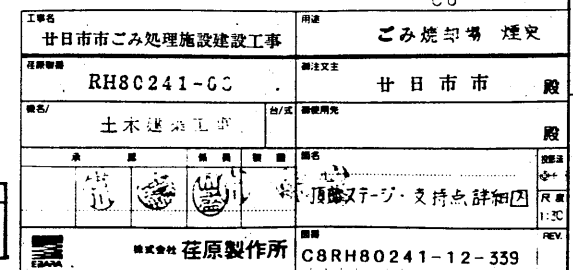 工事名
廿日市市ごみ処理施設建設工事
用途
ごみ焼却場 煙突
荏原製番
RH80241-
御注文主
廿日市市 殿
機名/
土木建築工事
台/式
御使用先
殿
承 認 係 長 製 図
図名
頂部ステージ・支持点詳細図
投影法
尺度
1:30
EBARA
株式会社 荏原製作所
図番
C8RH80241-12-339
REV.